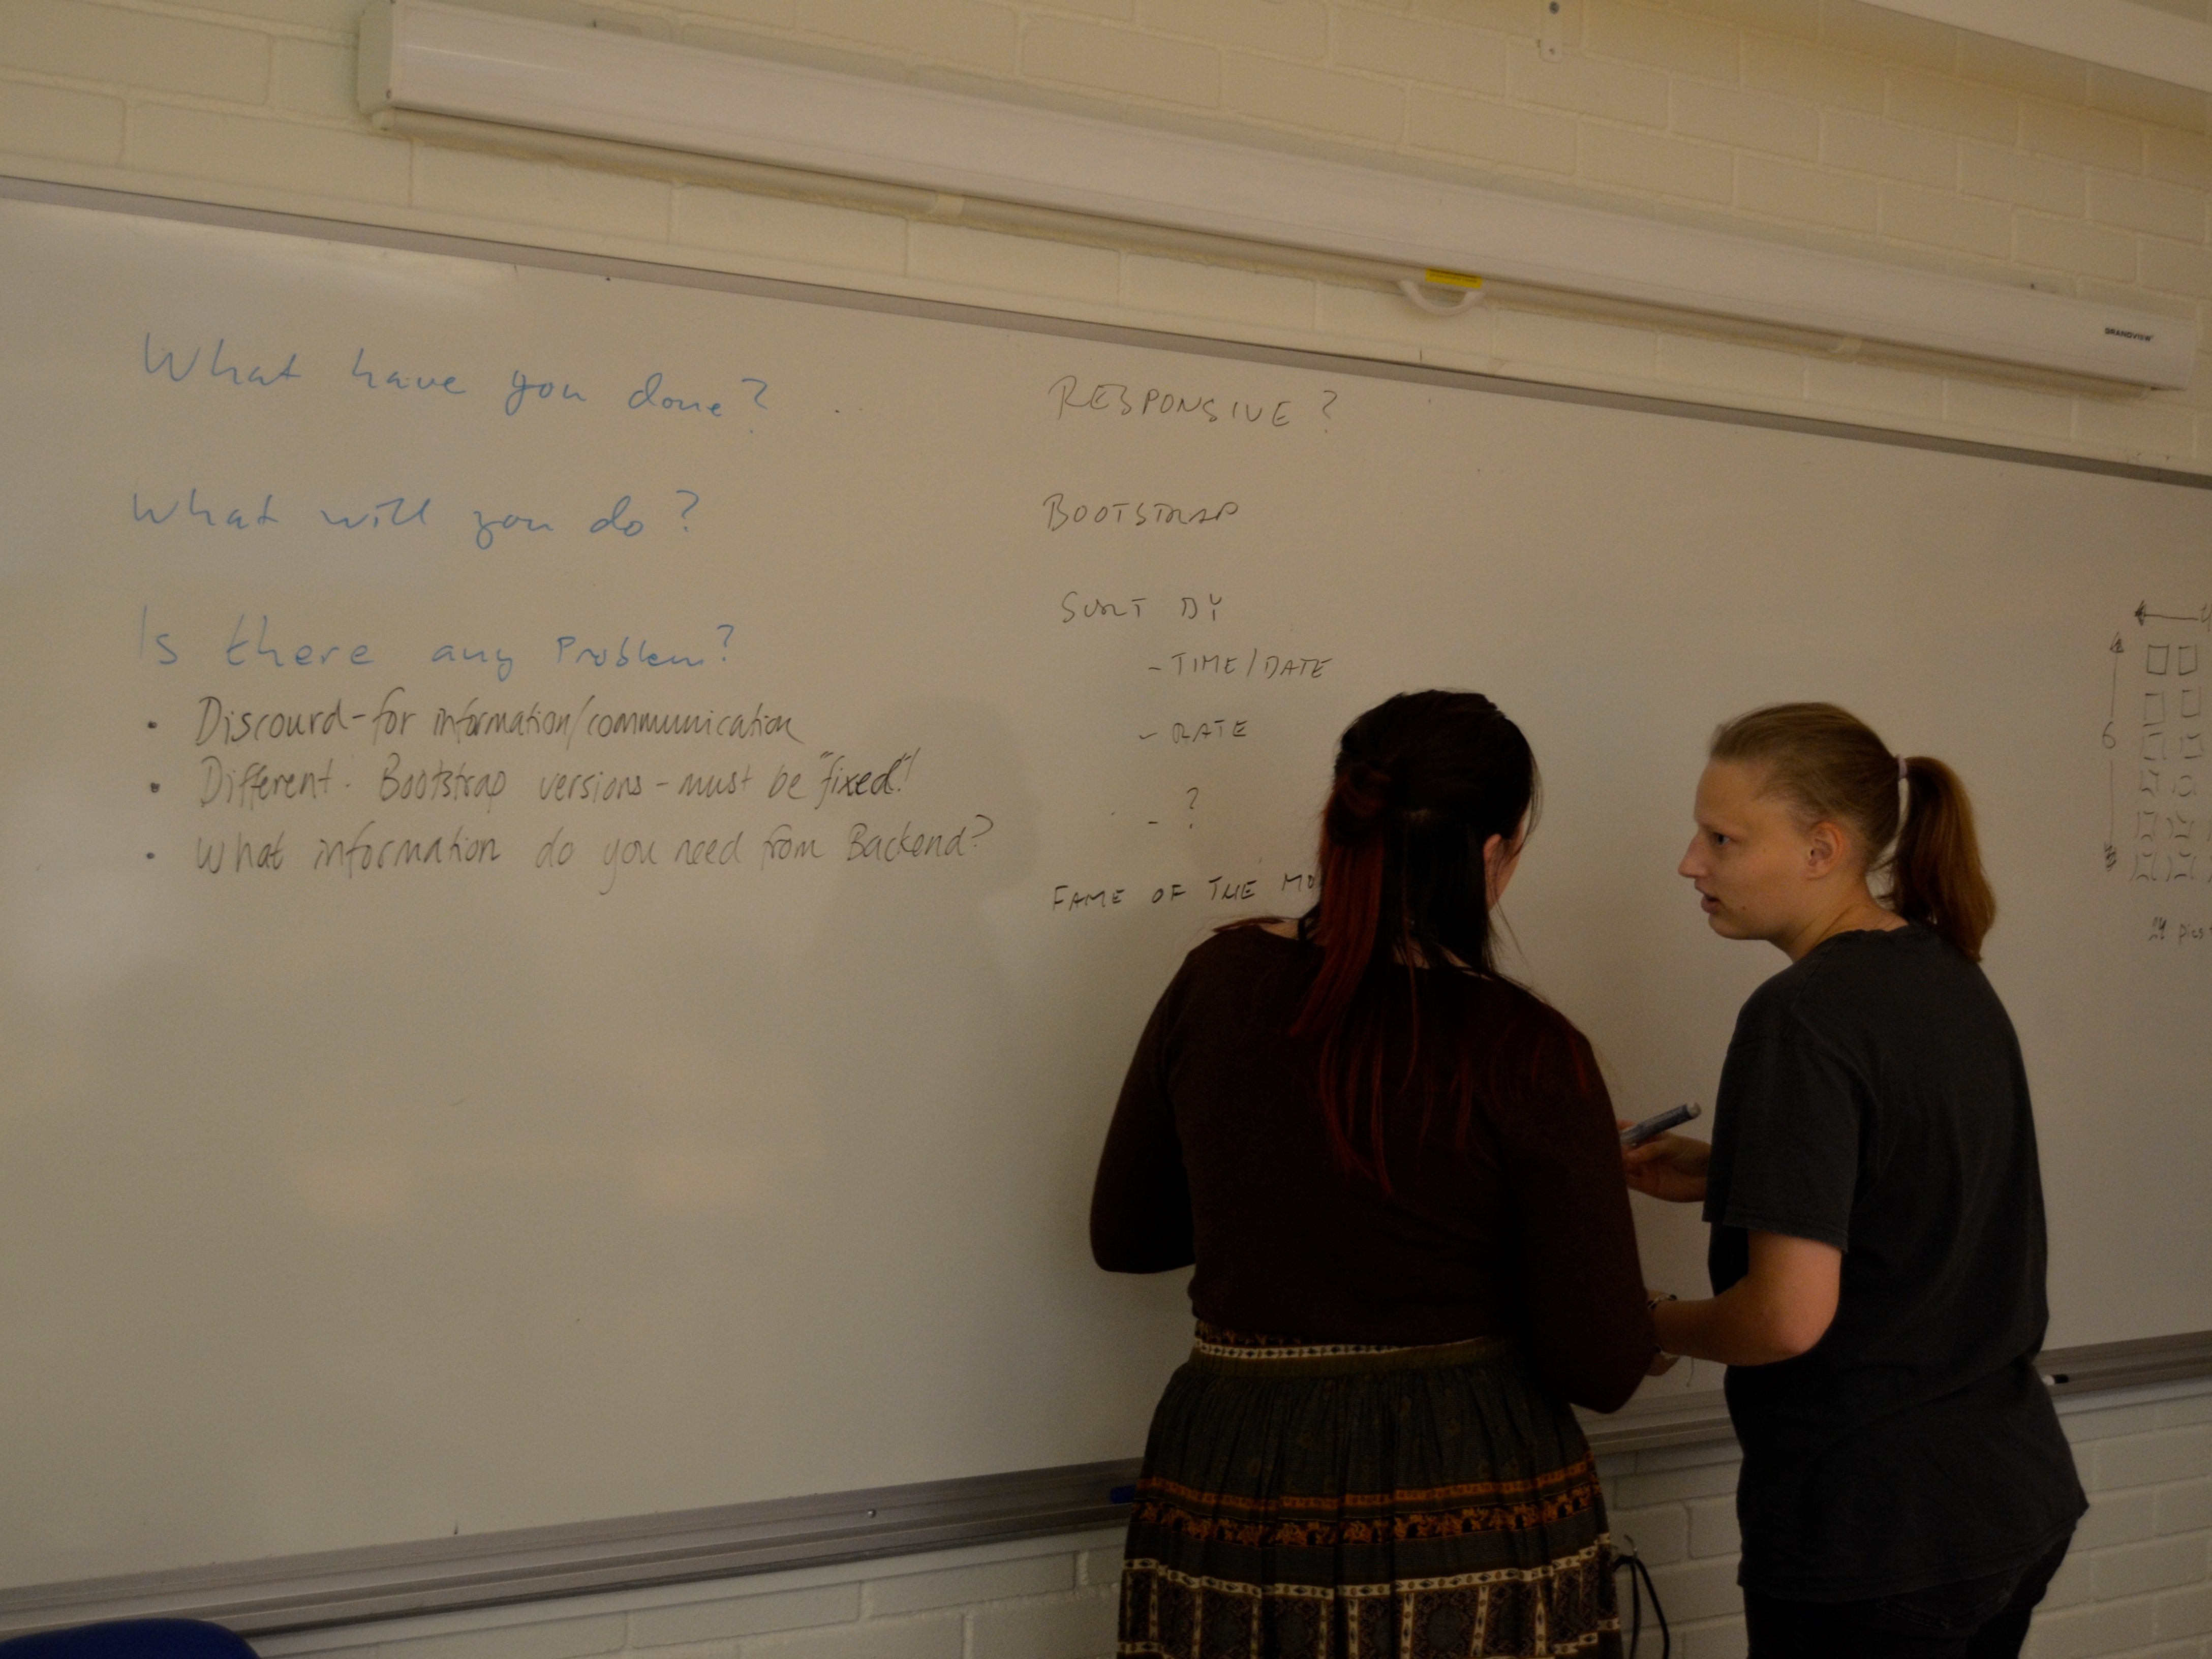 GRANDVIEW
What have you done?
What will you do?
Is there any Problem?
• Discourd-for information/communication
• Different Bootstrap versions - must be "fixed"!
• What information do you need from Backend?
RESPONSIVE?
BOOTSTRAP
SORT BY
- TIME/DATE
- RATE
- ?
FAME OF THE MO
6
24 pics